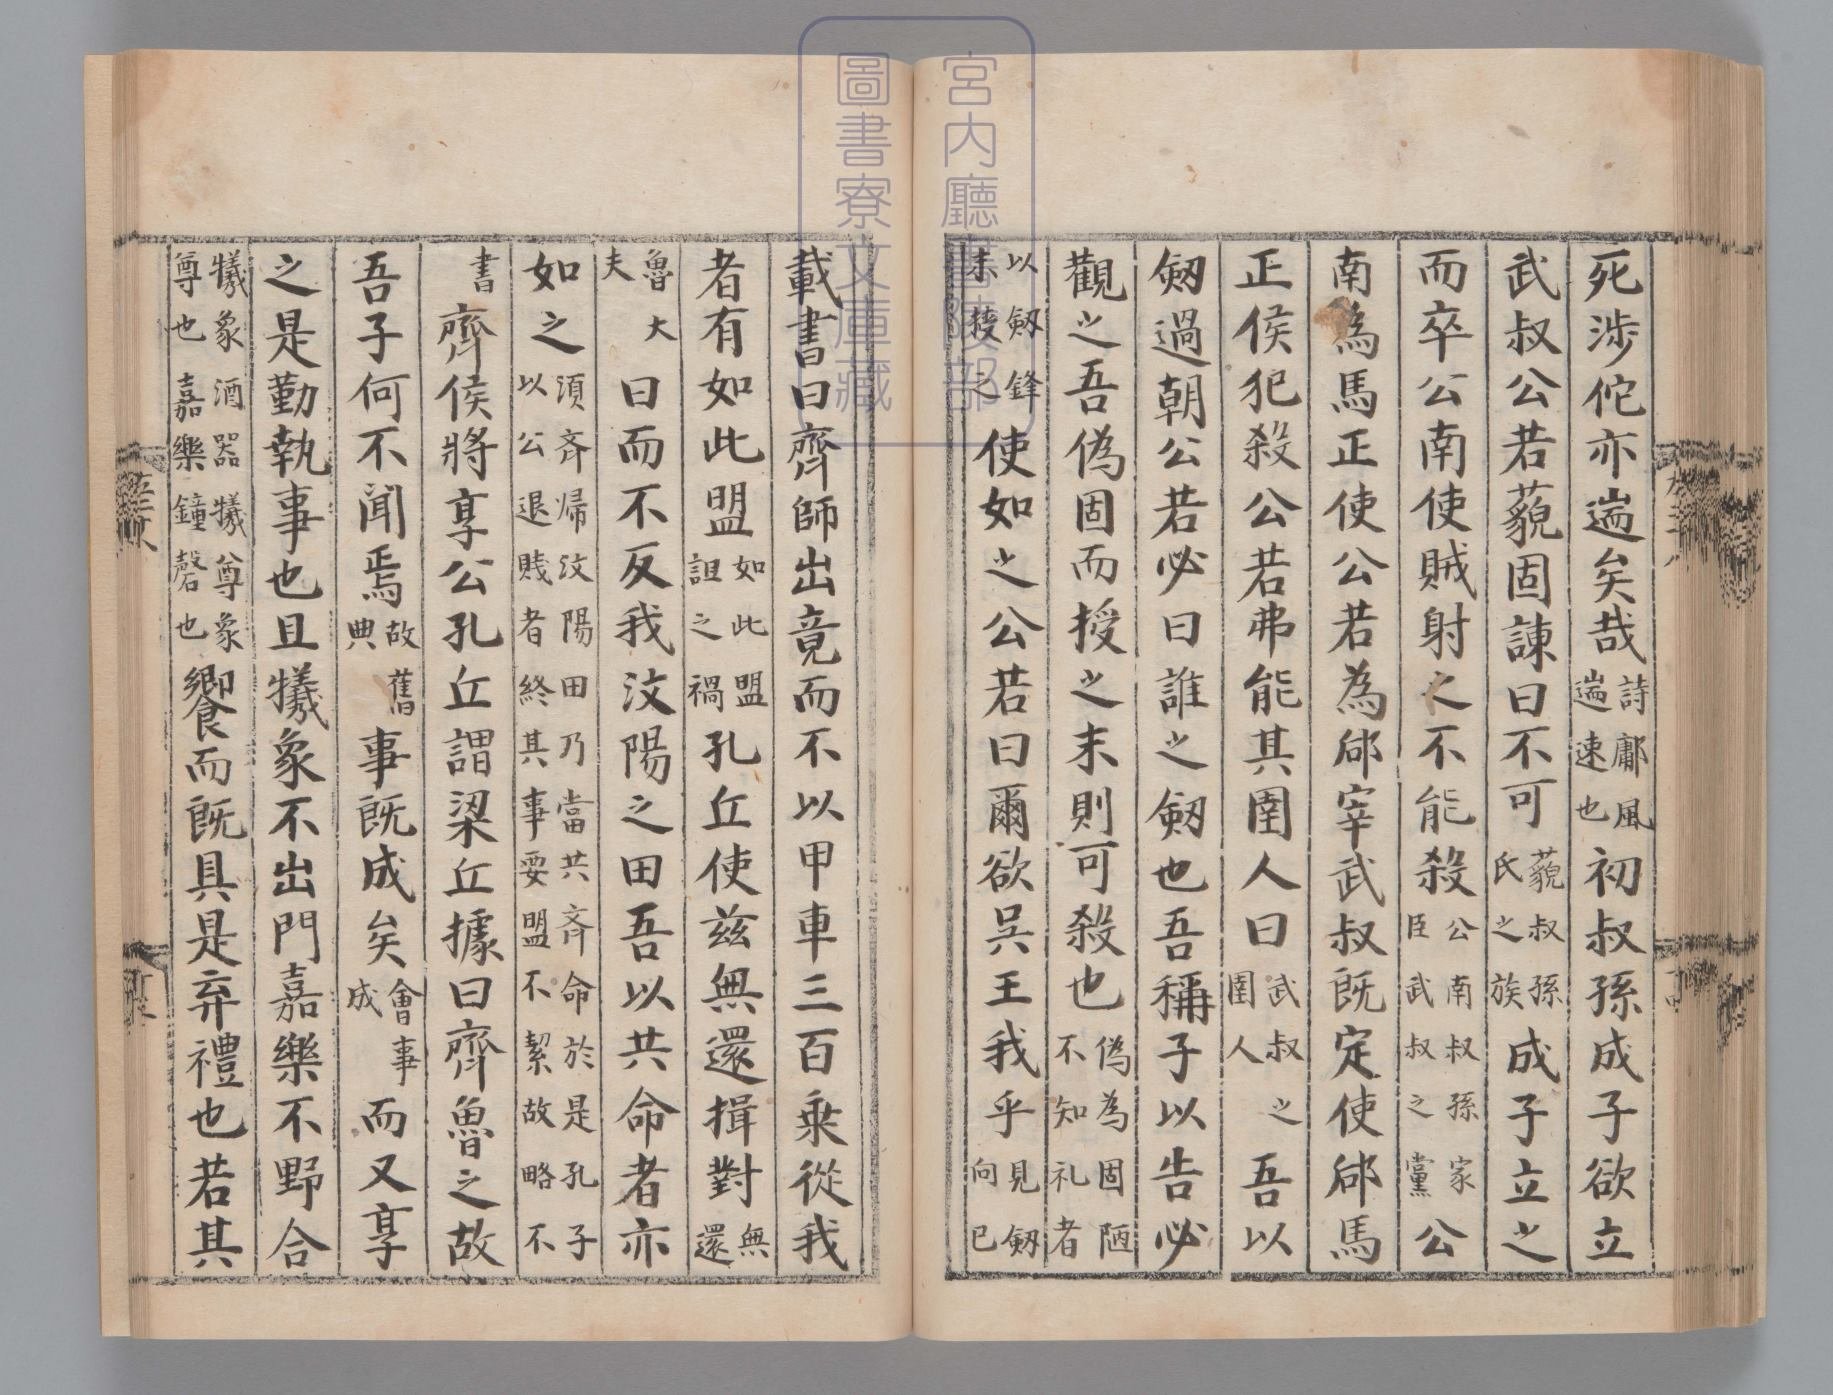 死涉佗亦遄矣哉詩鄘風遄速也初叔孫成子欲立
武叔公若藐固諫曰不可藐叔孫氏之族成子立之
而卒公南使賊射之不能殺公南叔孫家臣武叔之黨公
南為馬正使公若為郈宰武叔既定使郈馬
正侯犯殺公若弗能其圉人曰武叔之圉人吾以
劔過朝公若必曰誰之劔也吾稱子以告必
觀之吾偽固而授之末則可殺也偽為固陋不知礼者
以劔鋒末授之使如之公若曰爾欲吳王我乎見劔向已
載書曰齊師出竟而不以甲車三百乘從我
者有如此盟如此盟詛之禍孔丘使茲無還揖對無還
魯大夫曰而不反我汶陽之田吾以共命者亦
如之須齐帰汶陽田乃當共齐命於是孔子以公退賤者終其事要盟不絜故略不
書齊侯將享公孔丘謂梁丘據曰齊魯之故
吾子何不聞焉故舊典事既成矣會事成而又享
之是勤執事也且犧象不出門嘉樂不野合
犧象酒器犧尊象尊也嘉樂鐘磬也饗而既具是弃禮也若其
宮內廳書陵部
圖書寮文庫藏